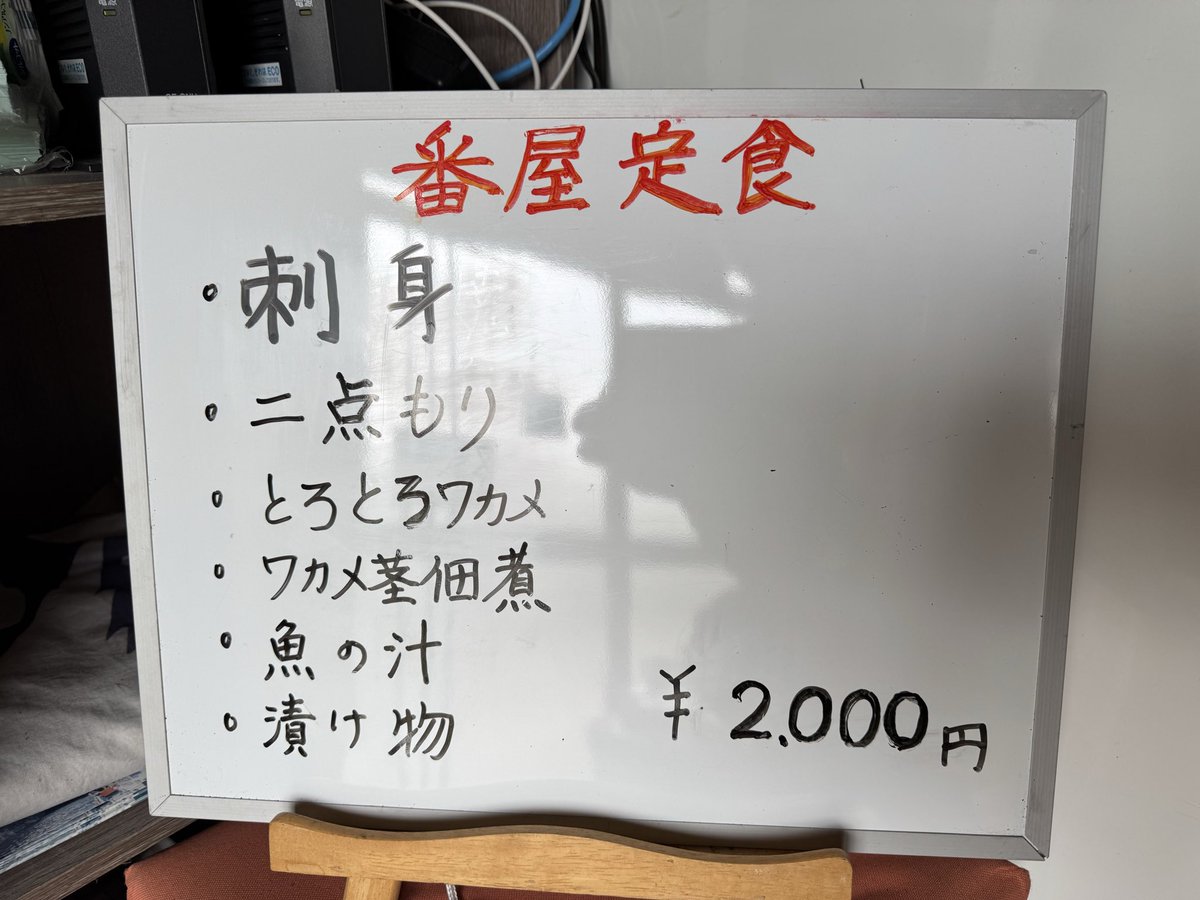 番屋定食
・刺身
・二点もり
・とろとろワカメ
・ワカメ茎佃煮
・魚の汁
・漬け物
¥2.000円